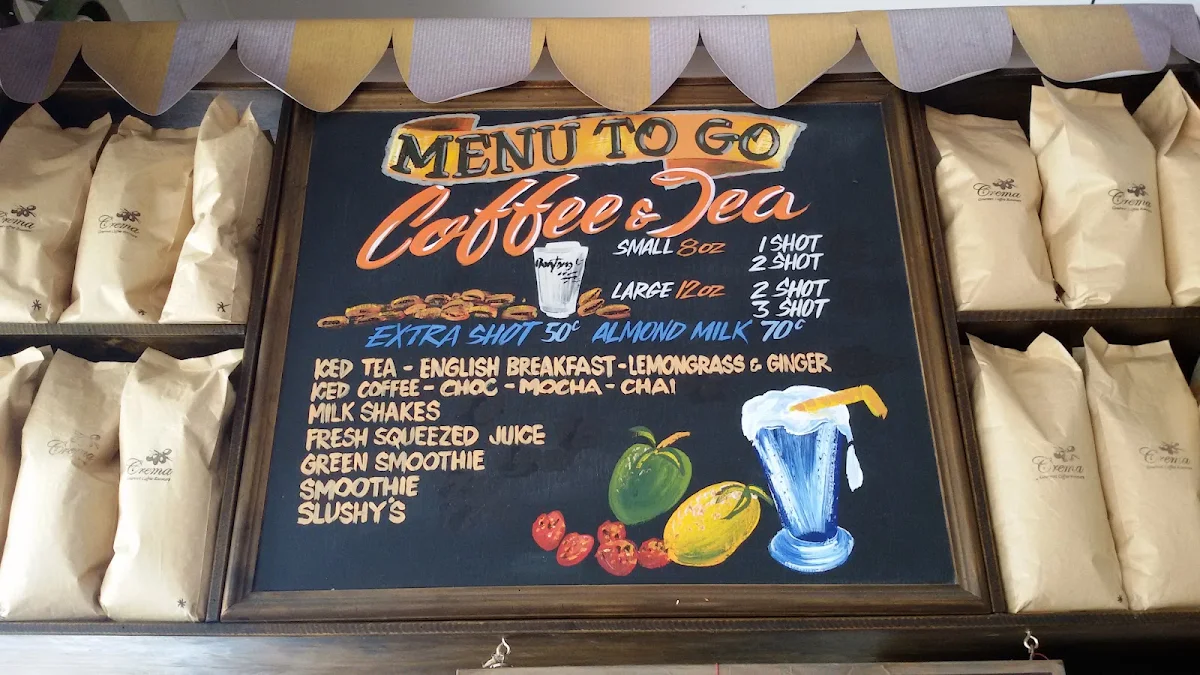 MENU TO GO
Coffee & Tea
SMALL 8oz 1 SHOT
2 SHOT
LARGE 12oz 2 SHOT
3 SHOT
EXTRA SHOT 50c ALMOND MILK 70c
ICED TEA - ENGLISH BREAKFAST - LEMONGRASS & GINGER
ICED COFFEE - CHOC - MOCHA - CHAI
MILK SHAKES
FRESH SQUEEZED JUICE
GREEN SMOOTHIE
SMOOTHIE
SLUSHY'S
Crema
Crema
Crema
Crema
Crema
Crema
Crema
Crema